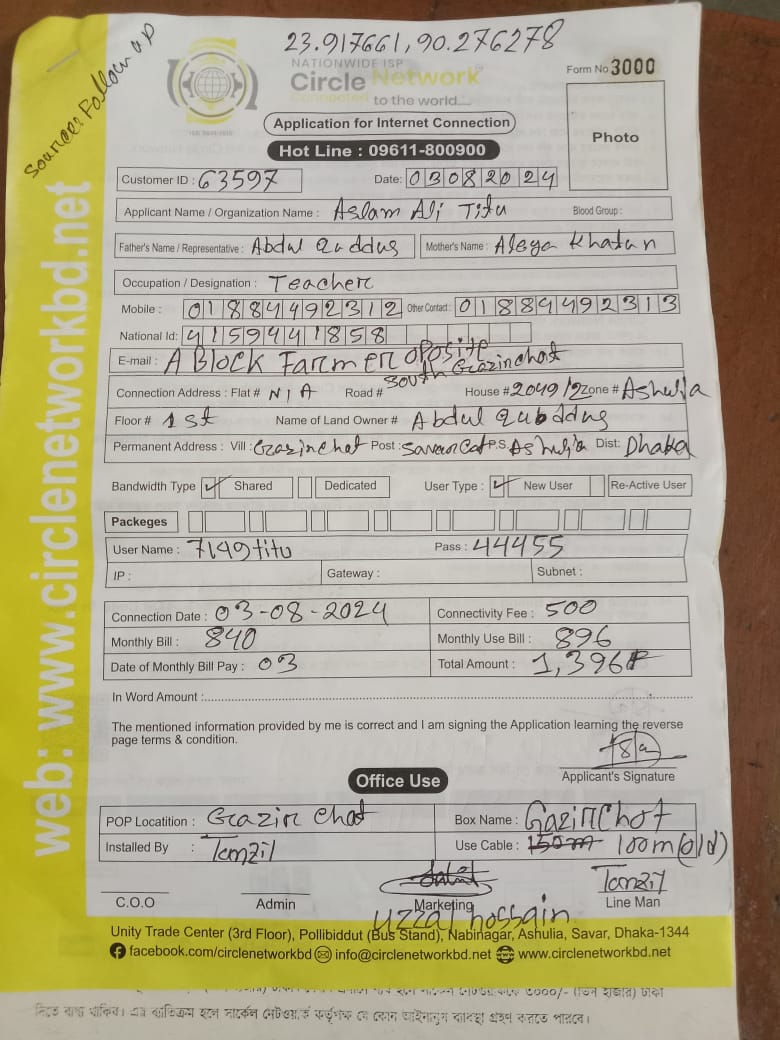 23.917661, 90.276278
Sources Follow up
NATIONWIDE ISP
Circle Network
Connected to the world....
Form No 3000
Application for Internet Connection
Photo
Hot Line : 09611-800900
Customer ID : 63597 Date: 03082024
Applicant Name / Organization Name : Aslam Ali Titu Blood Group :
Father's Name / Representative : Abdul Quddus Mother's Name : Aleya Khatun
Occupation / Designation : Teacher
Mobile : 01884492312 Other Contact : 01884492313
National Id: 4159441858
E-mail : A Block Farmer oposite
South Gazirchot
Connection Address : Flat # N/A Road # House # 2049/2 Zone # Ashulia
Floor # 1st Name of Land Owner # Abdul Qubddus
Permanent Address : Vill : Gazirchot Post : Savar Cat P.S. Ashulia Dist: Dhaka
Bandwidth Type ✓ Shared Dedicated User Type : ✓ New User Re-Active User
Packeges
User Name : 7149titu Pass : 44455
IP : Gateway : Subnet :
Connection Date : 03-08-2024 Connectivity Fee : 500
Monthly Bill : 840 Monthly Use Bill : 896
Date of Monthly Bill Pay : 03 Total Amount : 1,396
In Word Amount :
The mentioned information provided by me is correct and I am signing the Application learning the reverse
page terms & condition.
Applicant's Signature
Office Use
POP Locatition : Gazir Chot Box Name : Gazirchot
Installed By : Tanzil Use Cable : 150m 100m(old)
Tanzil
C.O.O Admin Marketing Line Man
Uzzal hossain
Unity Trade Center (3rd Floor), Pollibiddut (Bus Stand), Nabinagar, Ashulia, Savar, Dhaka-1344
facebook.com/circlenetworkbd info@circlenetworkbd.net www.circlenetworkbd.net
web: www.circlenetworkbd.net
৩০০০/- (তিন হাজার) টাকা
দিতে বাধ্য থাকিব। এর ব্যতিক্রম হলে সার্কেল নেটওয়ার্ক কর্তৃপক্ষ যে কোন আইনানুগ ব্যবস্থা গ্রহণ করতে পারবে।